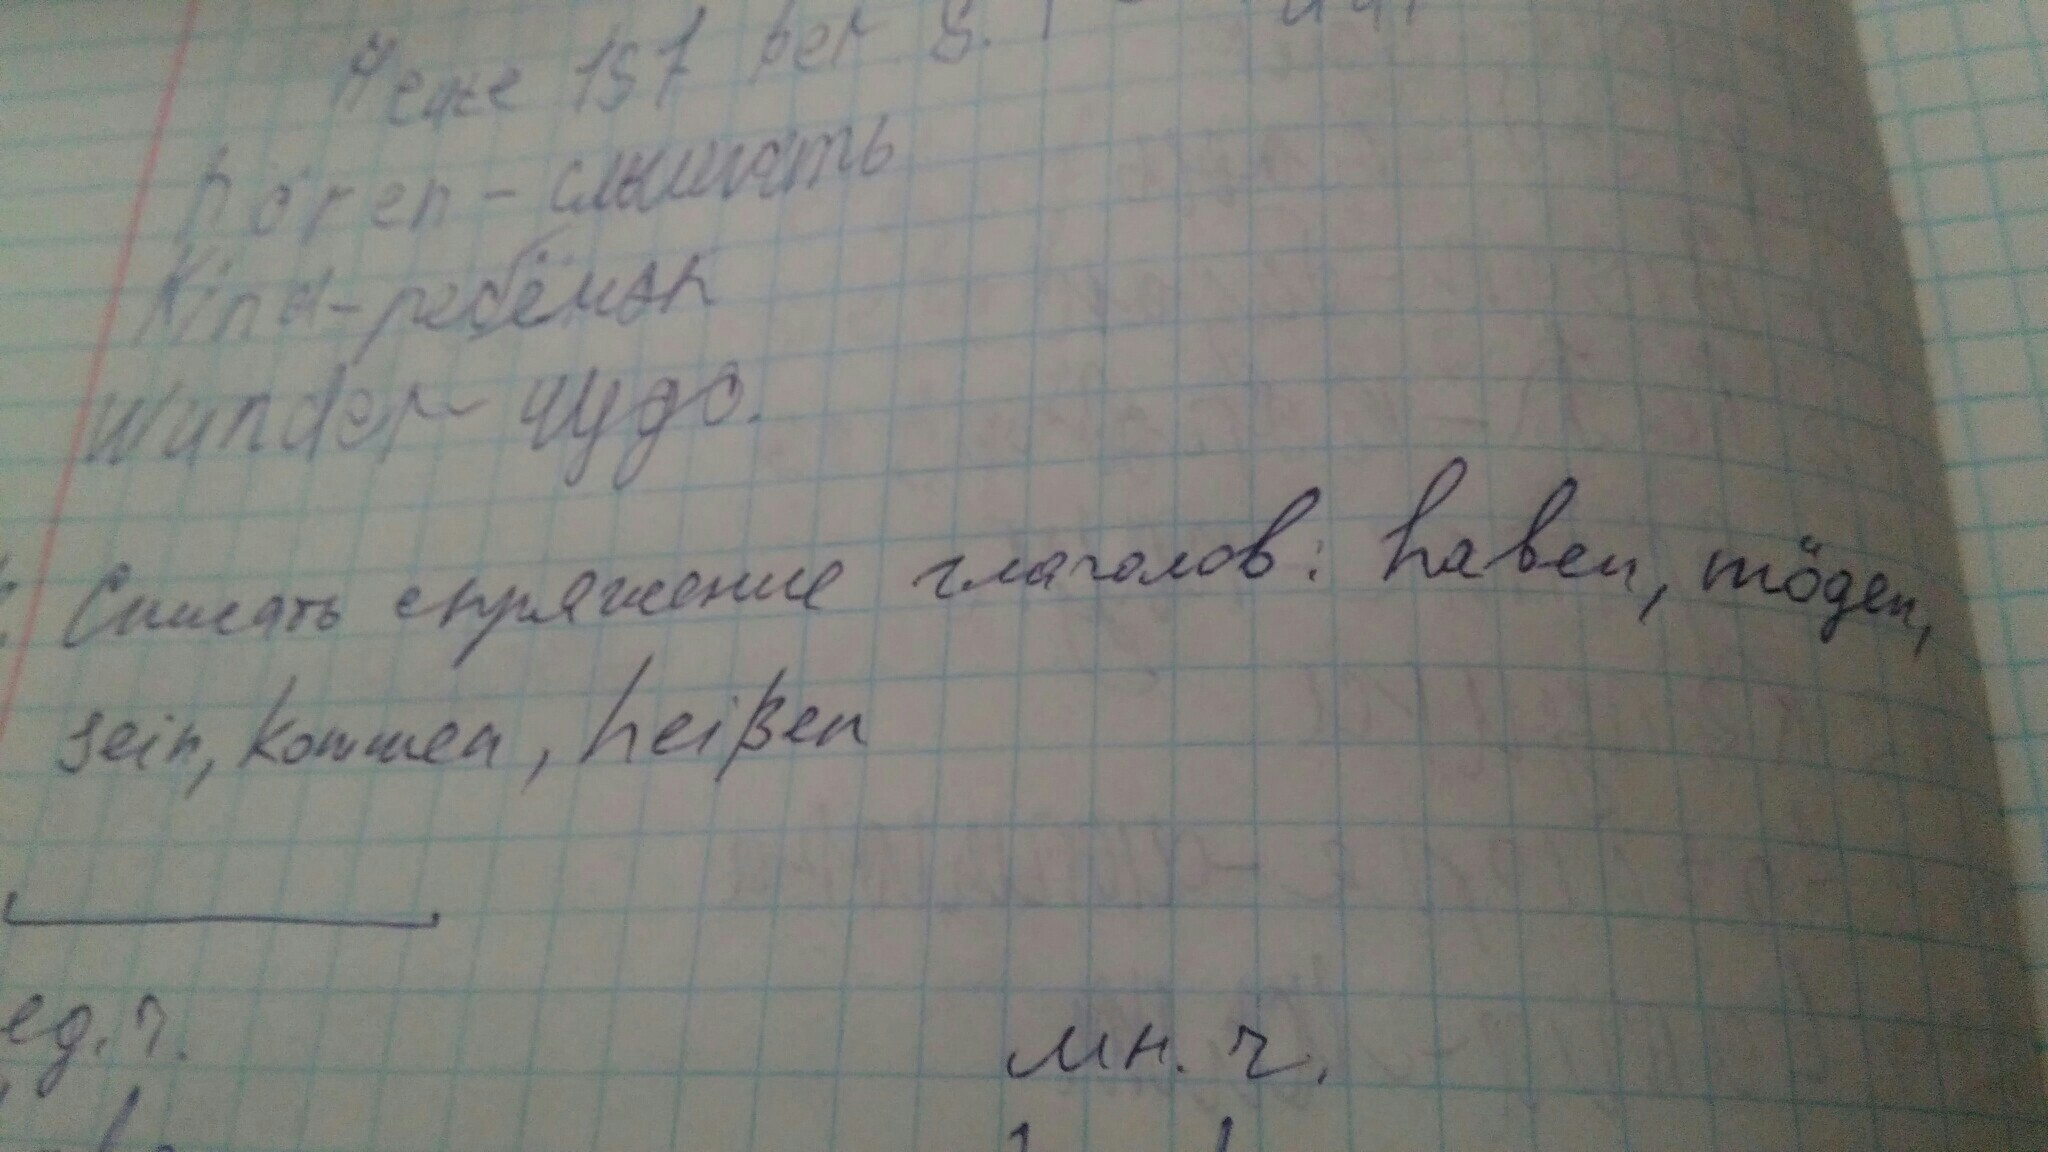 ist der
hören - слышать
Kind - ребёнок
Wunder - чудо.
Списать спряжение глаголов: haben, mögen,
sein, kommen, heißen
ед. ч.
мн. ч.